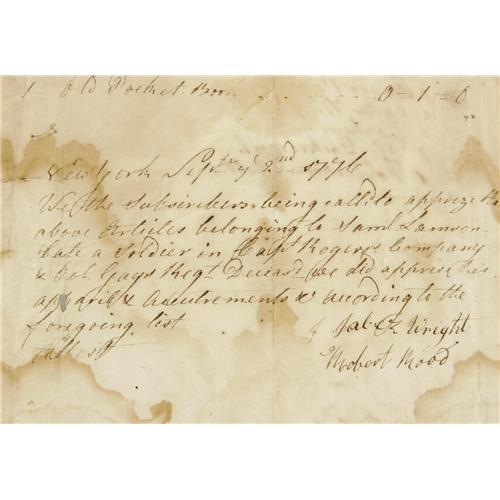 1 Old Pocket Book . . . . . 0 = 1 = 0
New York Sept. ye 2nd 1776
We the Subscribers being call'd to apprize the
above Articles belonging to Saml. Lamson
Late a Soldier in Capt Rogers Company
& Col. Gays Regt Deceasd we did apprise his
apparil & Accutrements &c according to the
foregoing list
Attest
Jabez Wright
Robert Wood